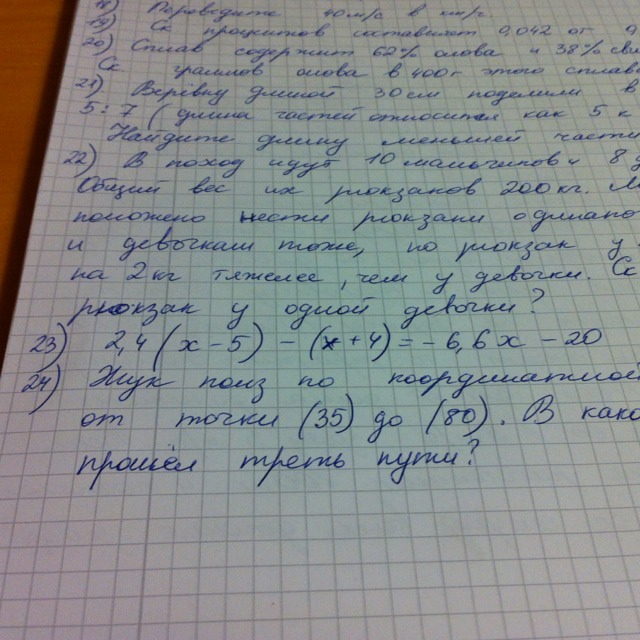 18) Переведите 40 м/с в км/г.
19) Ск процентов составляет 0,042 от
20) Сплав содержит 62% олова и 38%
Ск граммов олова в 400г этого сплава
21) Веревку длиной 30 см поделили в
5:7 (длина частей относится как 5 к
Найдите длину меньшей части
22) В поход идут 10 мальчиков и 8
Общий вес их рюкзаков 200 кг.
положено нести рюкзаки
и девочкам тоже, но рюкзак у
на 2 кг тяжелее, чем у девочки. Ск
рюкзак у одной девочки?
23) 2,4 (x - 5) - (x + 4) = - 6,6x - 20
24) Жук полз по координатной
от точки (35) до (80). В
прошёл треть пути?